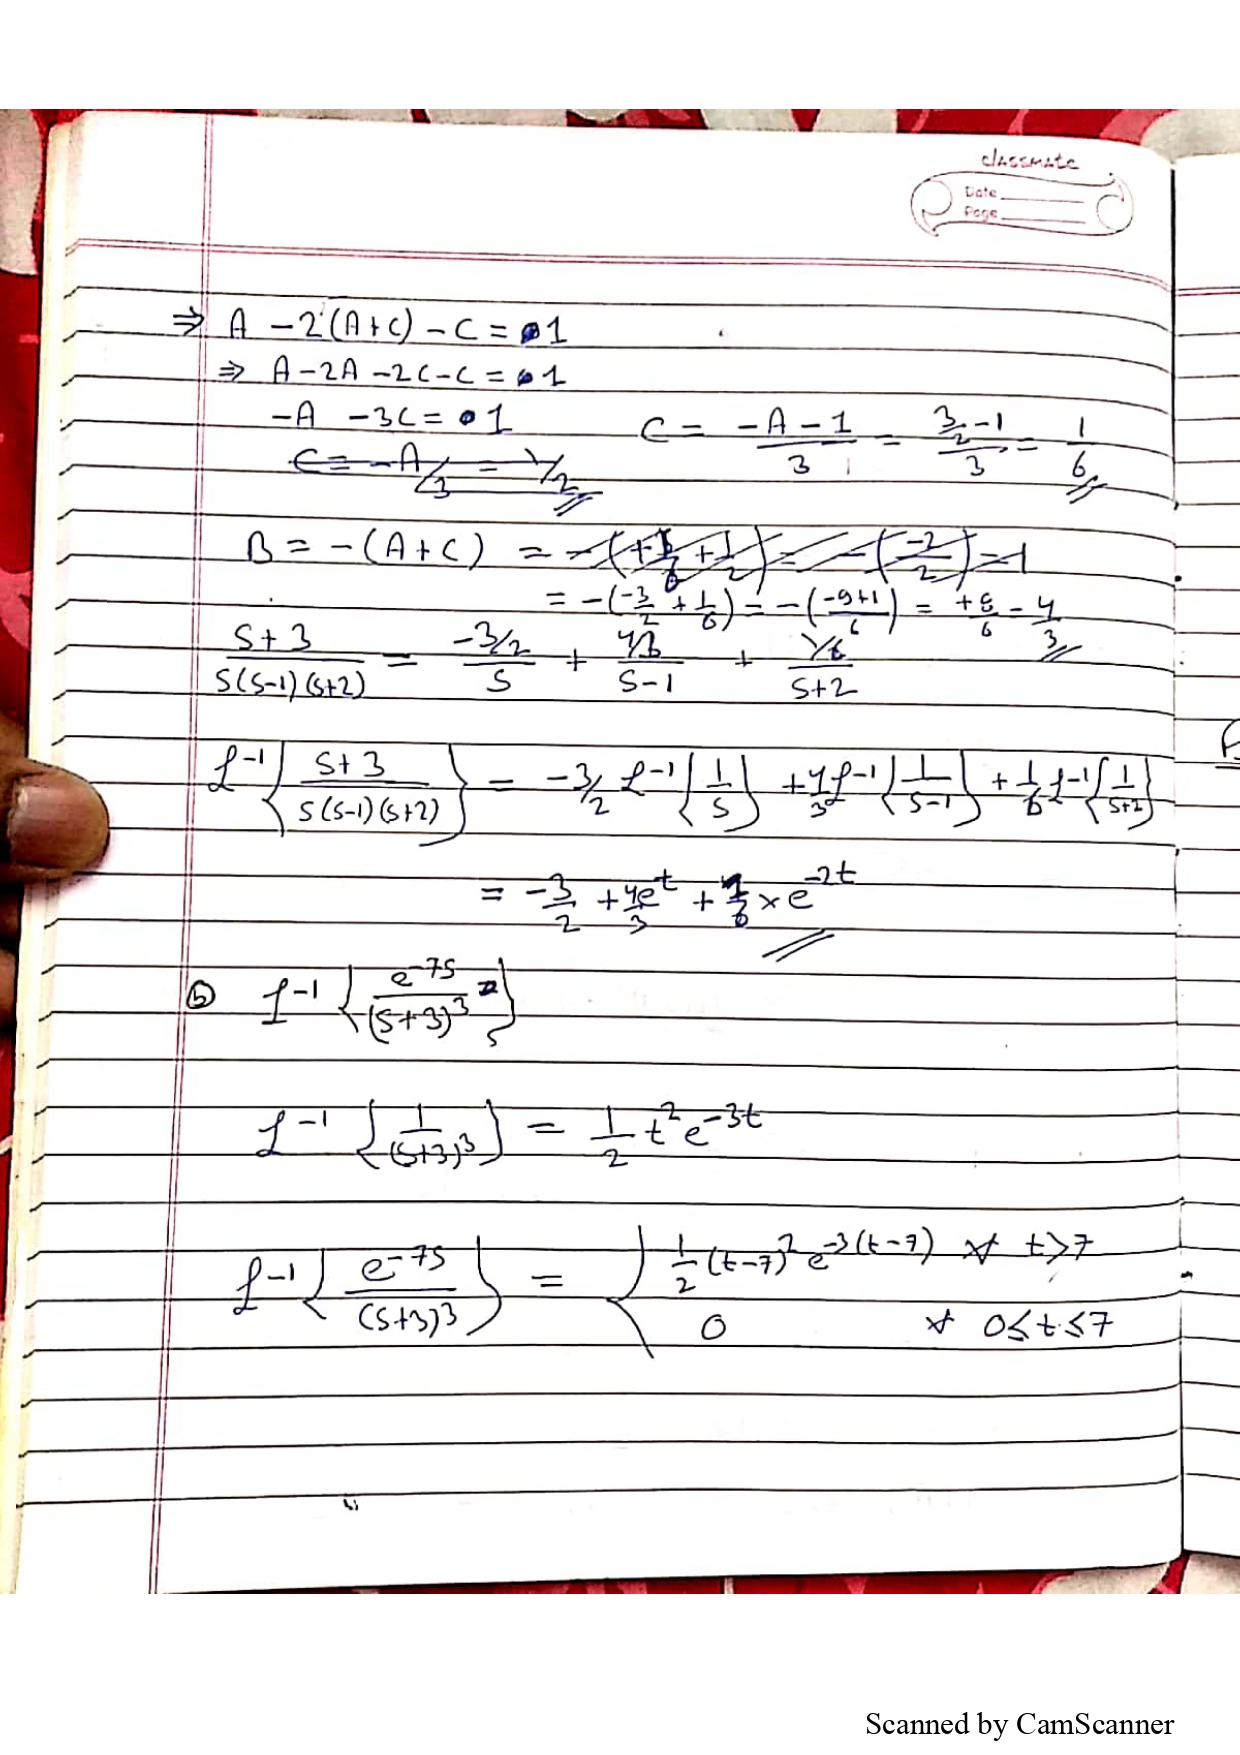 classmate
Date
Page
⇒ A - 2(A+C) - C = 1
⇒ A - 2A - 2C - C = 1
-A - 3C = 1    C = (-A - 1)/3 = (3/2 - 1)/3 = 1/6
C = -A/3 = 1/2
B = -(A+C) = = -(-2/2) = 1
= -(-3/2 + 1/6) = -((-9+1)/6) = +8/6 - 4/3
(S+3)/(S(S-1)(S+2)) = (-3/2)/S + (4/3)/(S-1) + (1/6)/(S+2)
L⁻¹{(S+3)/(S(S-1)(S+2))} = -3/2 L⁻¹{1/S} + 4/3 L⁻¹{1/(S-1)} + 1/6 L⁻¹{1/(S+2)}
= -3/2 + 4e^t/3 + 1/6 × e^-2t
ⓑ L⁻¹{e^-7S/(S+3)³}
L⁻¹{1/(S+3)³} = 1/2 t² e^-3t
L⁻¹{e^-7S/(S+3)³} = { 1/2 (t-7)² e^-3(t-7) ∀ t>7
0 ∀ 0≤t≤7
Scanned by CamScanner